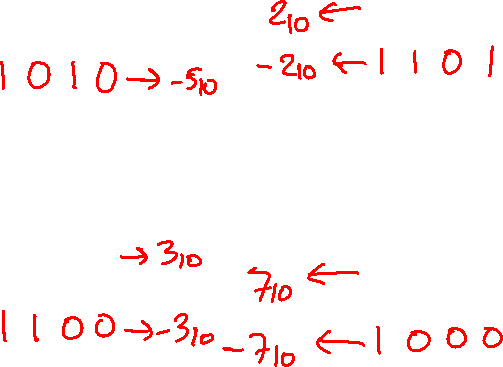 2₁₀ ←
1 0 1 0 → -5₁₀ -2₁₀ ← 1 1 0 1
→ 3₁₀ 7₁₀ ←
1 1 0 0 → -3₁₀ -7₁₀ ← 1 0 0 0